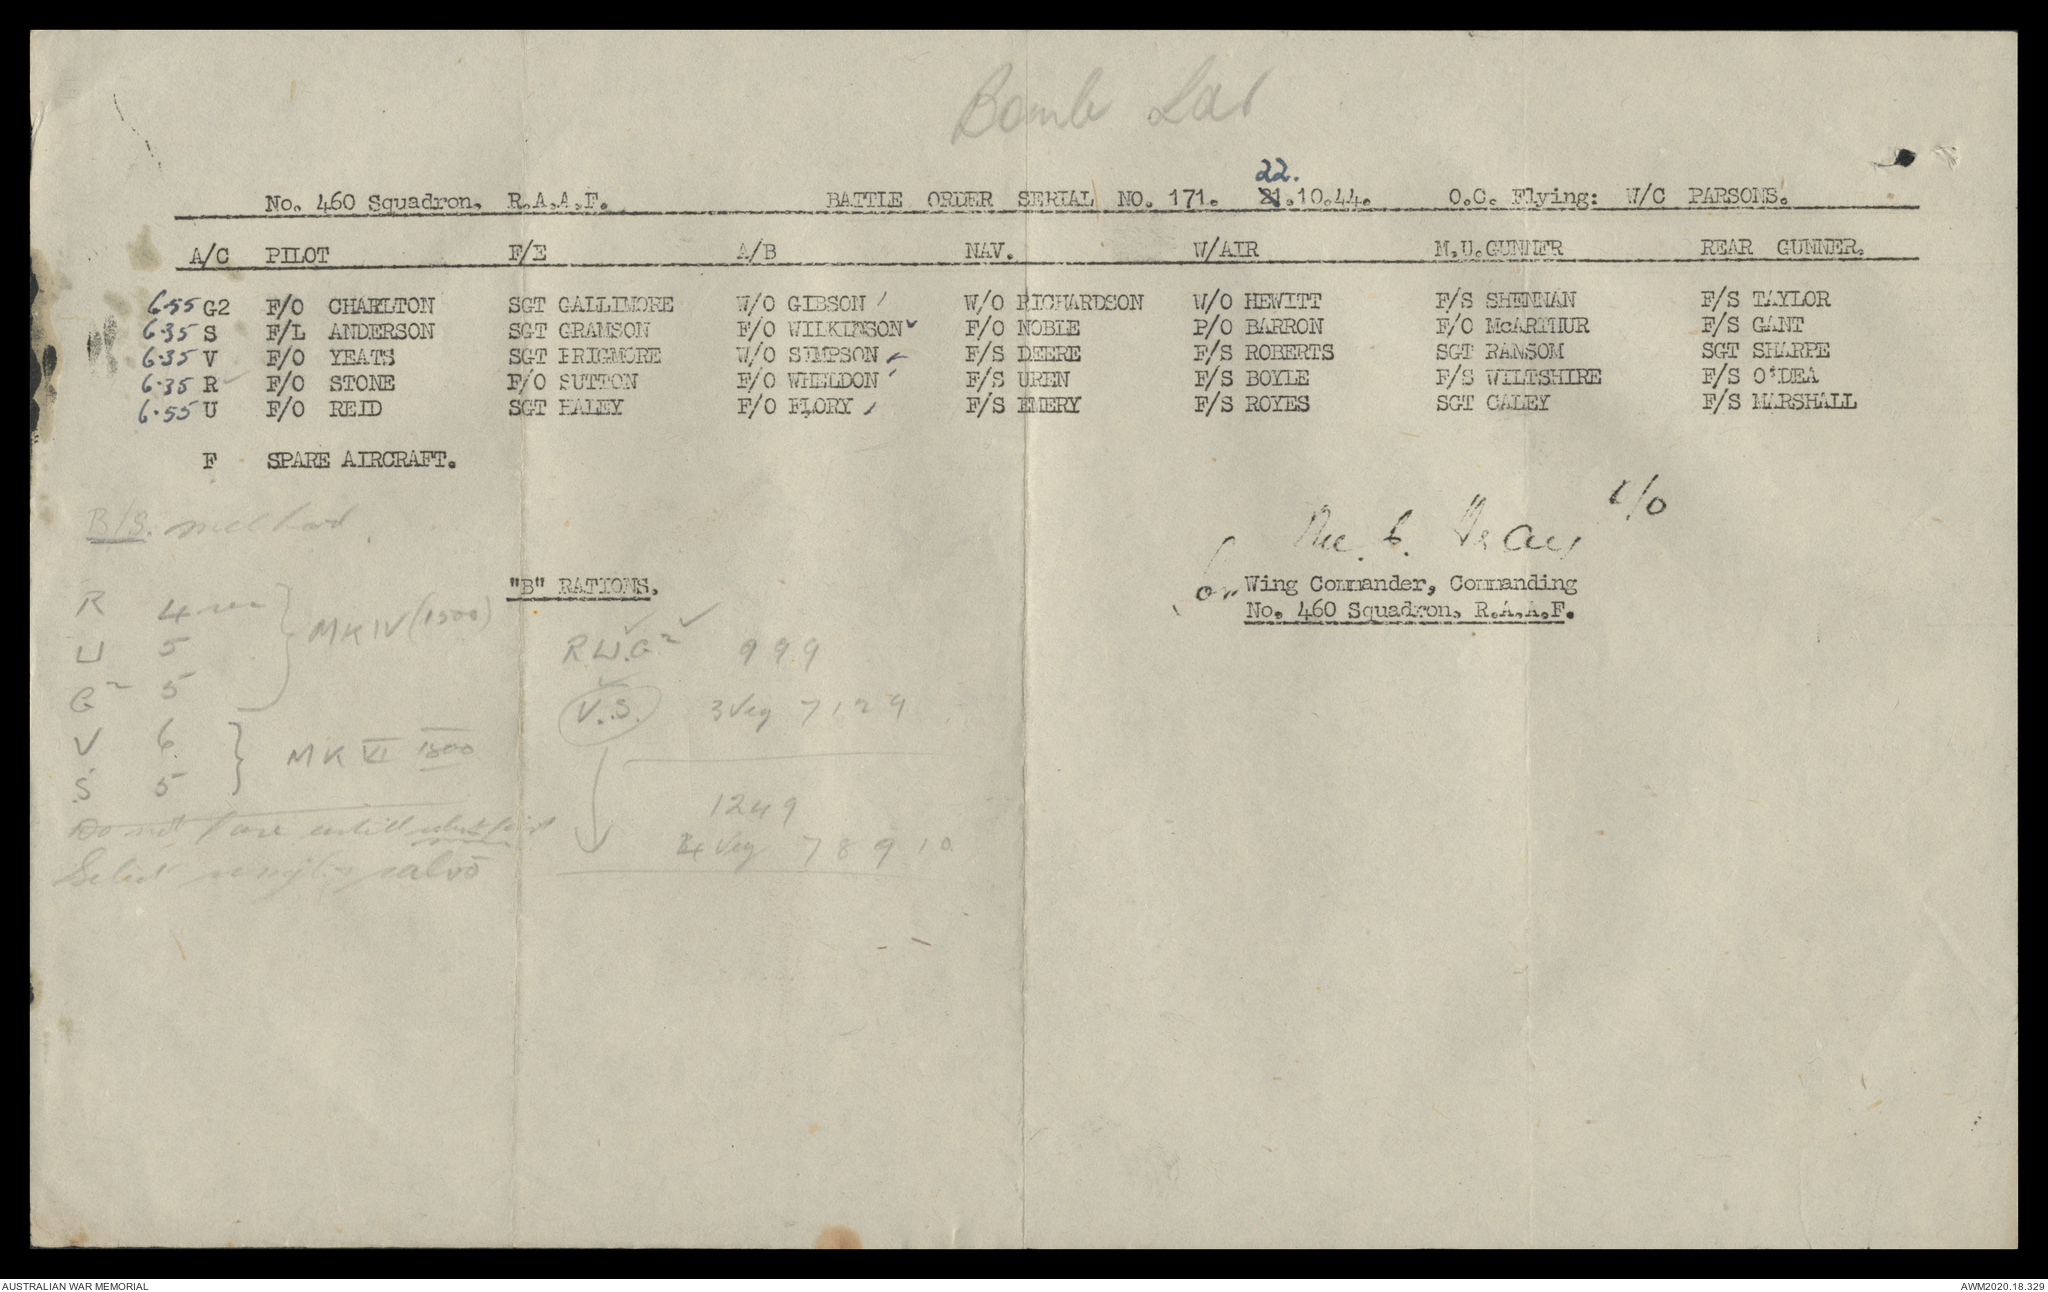 Bomb
22.
No. 460 Squadron, R.A.A.F. BATTLE ORDER SERIAL NO. 171. 21.10.44. O.C. Flying: W/C PARSONS.
A/C PILOT F/E A/B NAV. W/AIR M.U.GUNNER REAR GUNNER.
6.55 G2 F/O CHARLTON SGT GALLIMORE W/O GIBSON W/O RICHARDSON W/O HEWITT F/S SHENNAN F/S TAYLOR
6.35 S F/L ANDERSON SGT GRAMSON F/O WILKINSON F/O NOBLE P/O BARRON F/O McARTHUR F/S GANT
6.35 V F/O YEATS SGT PRIGMORE W/O SIMPSON F/S DEERE F/S ROBERTS SGT RANSOM SGT SHARPE
6.35 R F/O STONE F/O SUTTON F/O WHELDON F/S UREN F/S BOYLE F/S WILTSHIRE F/S O'DEA
6.55 U F/O REID SGT HALEY F/O FLORY F/S EMERY F/S ROYES SGT CALEY F/S MARSHALL
F SPARE AIRCRAFT.
B/S. method
for Wing Commander, Commanding
No. 460 Squadron, R.A.A.F.
"B" RATIONS.
R 4 MK IV (1500)
U 5
G2 5
V 6 MK VI 1500
S 5
R.U.G2 999
V.S. 3 Veg 7 1 2 9
1249
4 Veg 7 8 9 10
Do not fuse until
Select salvo